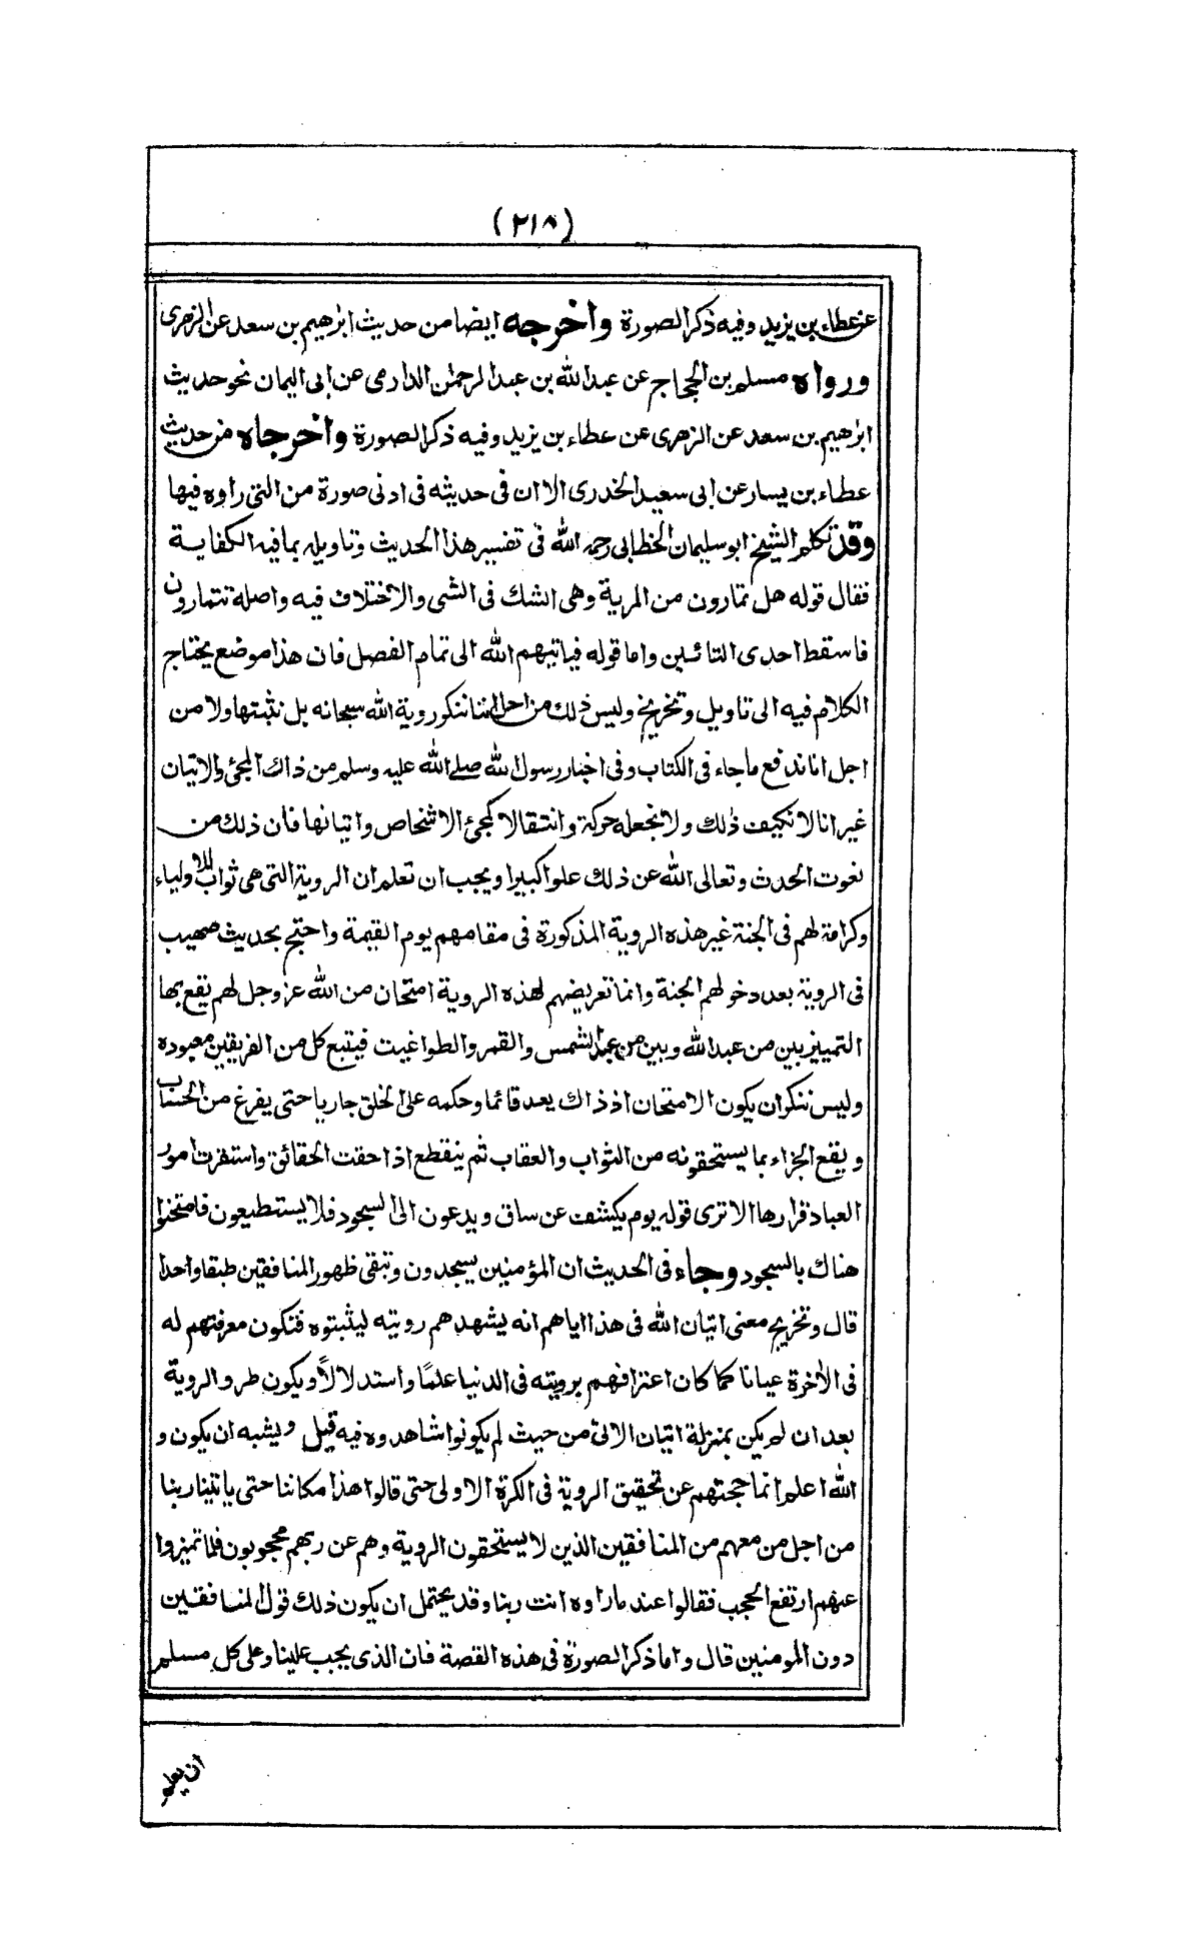 (٢١٨)
عن عطاء بن يزيد وفيه ذكر الصورة واخرجه ايضا من حديث ابرٰهيم بن سعد عن الزهرى
ورواه مسلم بن الحجاج عن عبد الله بن عبد الرحمٰن الدارمى عن ابى اليمان نحو حديث
ابرٰهيم بن سعد عن الزهرى عن عطاء بن يزيد وفيه ذكر الصورة واخرجاه من حديث
عطاء بن يسار عن ابى سعيد الخدرى الا ان فى حديثه فى ادنى صورة من التى راوه فيها
وقد تكلم الشيخ ابو سليمان الخطابى رحمه الله فى تفسير هذا الحديث وتاويله بما فيه الكفاية
فقال قوله هل تمارون من المرية وهى الشك فى الشى والاختلاف فيه واصله تتمارون
فاسقط احدى التائين واما قوله فياتيهم الله الى تمام الفصل فان هذا موضع يحتاج
الكلام فيه الى تاويل وتخريج وليس ذلك من اجل اننا ننكر روية الله سبحانه بل نثبتها ولا من
اجل انا ندفع ما جاء فى الكتاب وفى اخبار رسول الله صلے الله عليه وسلم من ذاك المجئ والاتيان
غير انا لا نكيف ذٰلك ولا نجعله حركة وانتقالا كمجئ الاشخاص واتيانها فان ذلك من
نعوت الحدث وتعالى الله عن ذلك علوا كبيرا ويجب ان تعلم ان الروية التى هى ثواب للاولياء
وكرامة لهم فى الجنة غير هذه الروية المذكورة فى مقامهم يوم القيٰمة واحتج بحديث صهيب
فى الروية بعد دخولهم الجنة وانما تعريضهم لهذه الروية امتحان من الله عز وجل لهم يقع بها
التمييز بين من عبد الله وبين من عبد الشمس والقمر والطواغيت فيتبع كل من الفريقين معبوده
وليس ننكر ان يكون الامتحان اذ ذاك يعد قائما وحكمه على الخلق جاريا حتى يفرغ من الحساب
ويقع الجزاء بما يستحقونه من الثواب والعقاب ثم ينقطع اذا حقت الحقائق واستقرت امور
العباد قرارها الا ترى قوله يوم يكشف عن ساق ويدعون الى السجود فلا يستطيعون فامتحنوا
هناك بالسجود وجاء فى الحديث ان المؤمنين يسجدون وتبقى ظهور المنافقين طبقا واحدا
قال وتخريج معنى اتيان الله فى هذا اياهم انه يشهدهم رويته ليثبتوه فتكون معرفتهم له
فى الاٰخرة عيانا كما كان اعترافهم برويته فى الدنيا علمًا واستدلالاً ويكون طرو الروية
بعد ان لم يكن بمنزلة اتيان الاتى من حيث لم يكونوا شاهدوه فيه قيل ويشبه ان يكون و
الله اعلم انما حجتهم عن تحقيق الروية فى الكرة الاولى حتى قالوا هذا مكاننا حتى ياتينا ربنا
من اجل من معهم من المنافقين الذين لا يستحقون الروية وهم عن ربهم محجوبون فلما تميزوا
عنهم ارتفع الحجب فقالوا عند ما راوه انت ربنا وقد يحتمل ان يكون ذلك قول المنافقين
دون المومنين قال واما ذكر الصورة فى هذه القصة فان الذى يجب علينا وعلى كل مسلم
ان يعلم